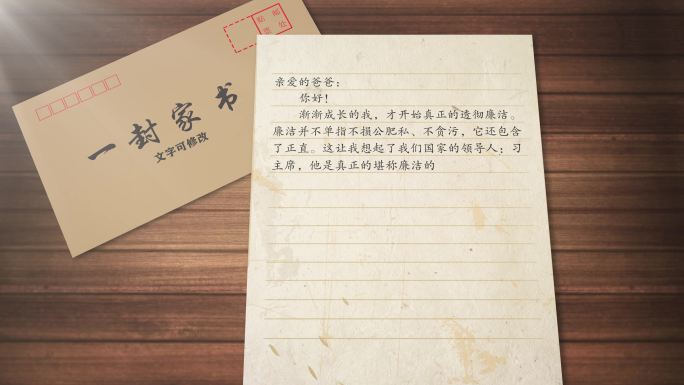 贴 邮
票 处
一封家书
文字可修改
亲爱的爸爸：
你好！
渐渐成长的我，才开始真正的透彻廉洁。
廉洁并不单指不损公肥私、不贪污，它还包含
了正直。这让我想起了我们国家的领导人：习
主席，他是真正的堪称廉洁的